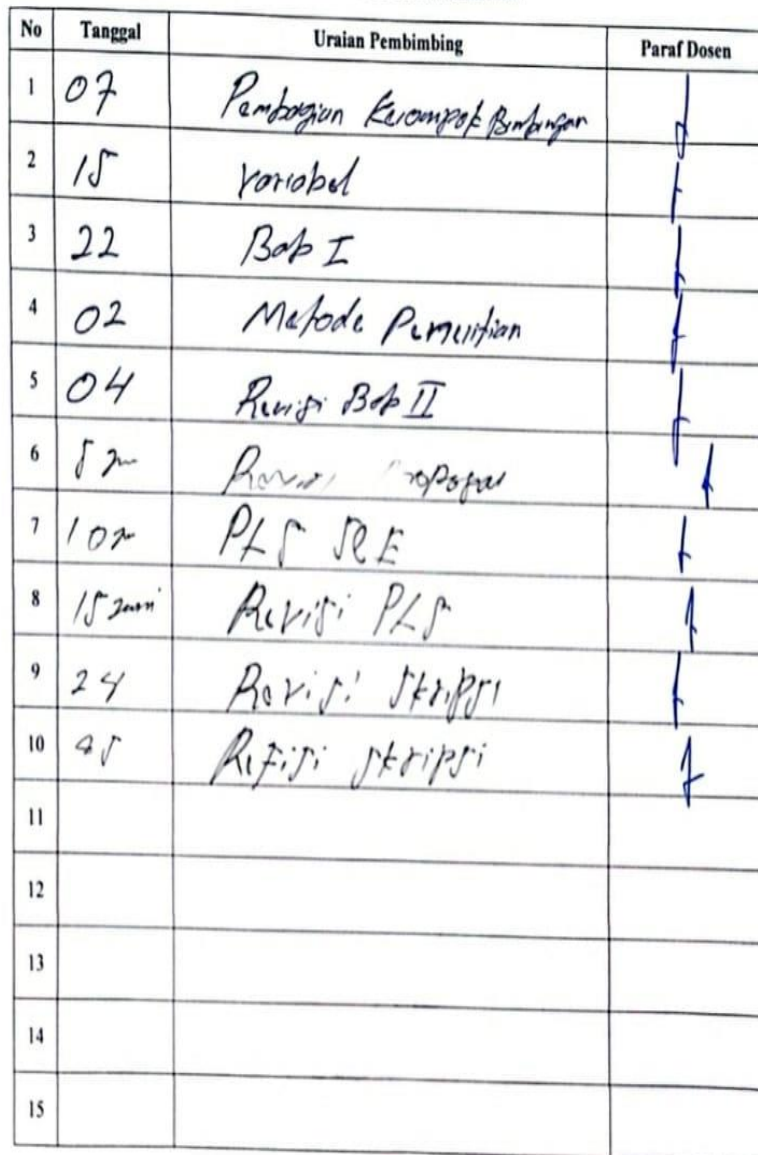 No Tanggal Uraian Pembimbing Paraf Dosen
1 07 Pembagian Kelompok Bimbingan
2 15 Variabel
3 22 Bab I
4 02 Metode Penelitian
5 04 Revisi Bab II
6 5 Revisi
7 10 PLS
8 15 Juni Revisi PLS
9 24 Revisi Skripsi
10 Refisi skripsi
11
12
13
14
15